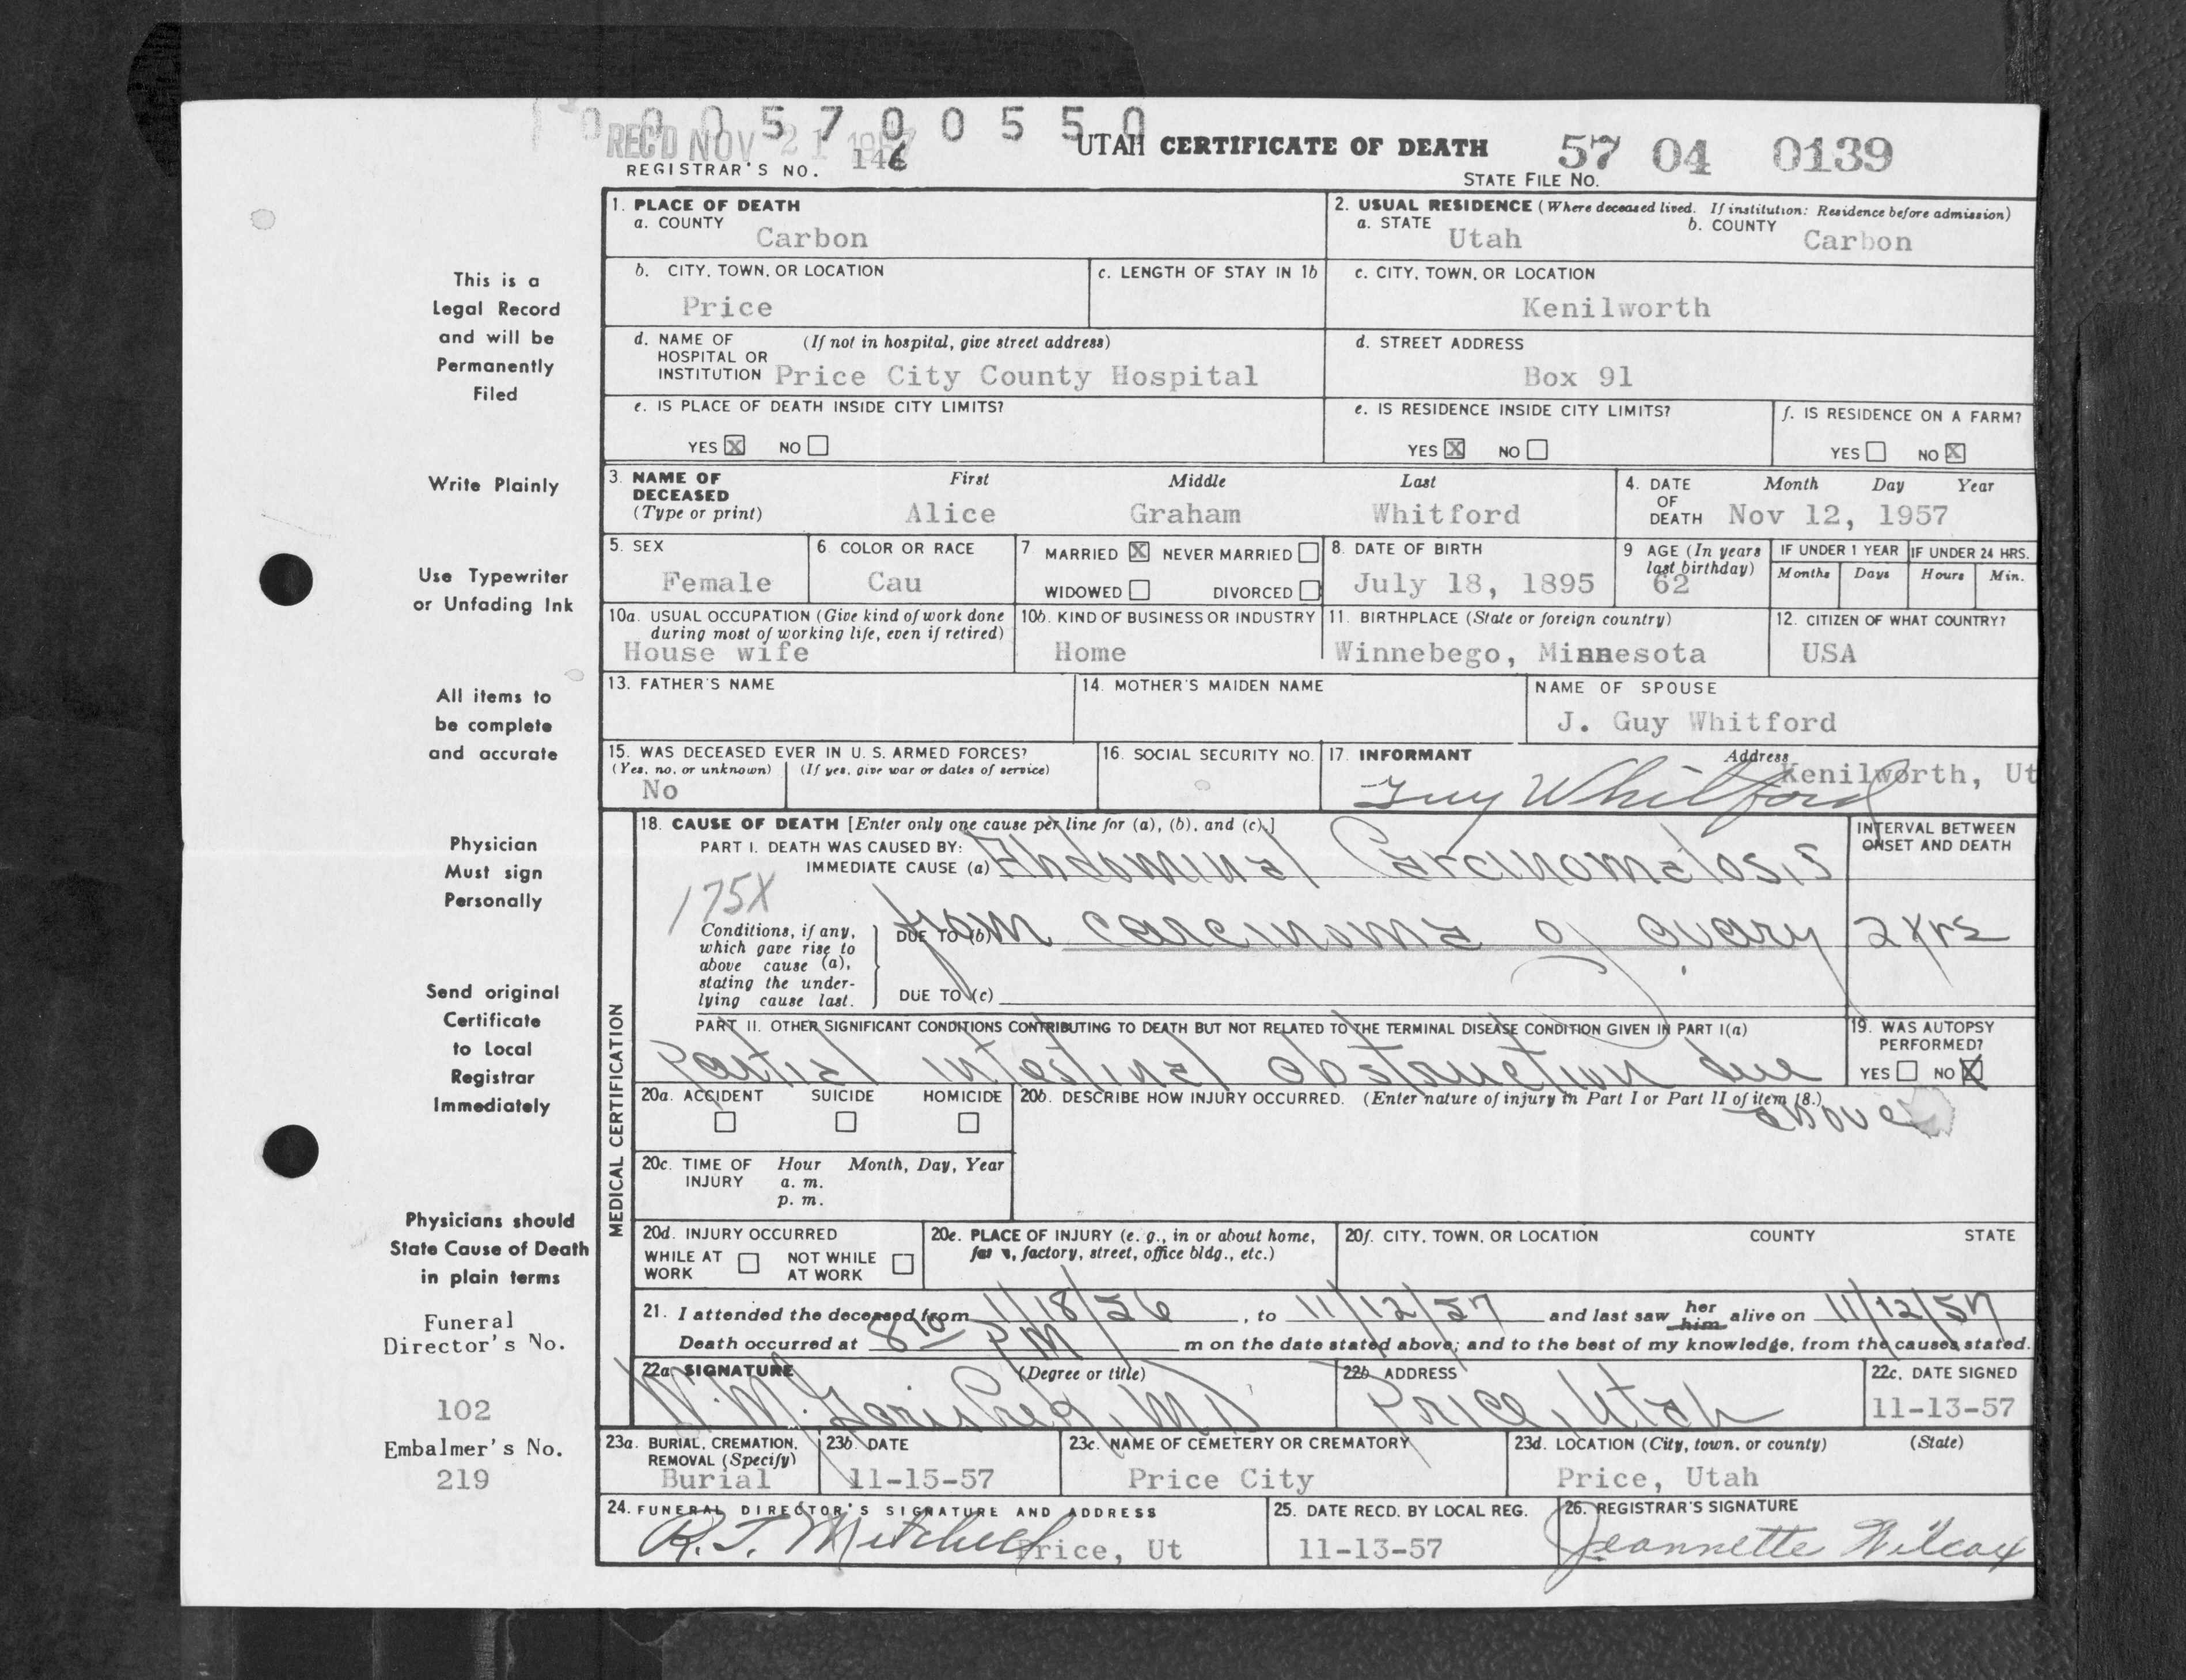 0005700550
REC'D NOV 21 1957
UTAH CERTIFICATE OF DEATH
57 04 0139
REGISTRAR'S NO. 146
STATE FILE NO.
1. PLACE OF DEATH
a. COUNTY
Carbon
2. USUAL RESIDENCE (Where deceased lived. If institution: Residence before admission)
a. STATE Utah b. COUNTY Carbon
b. CITY, TOWN, OR LOCATION
Price
c. LENGTH OF STAY IN 1b
c. CITY, TOWN, OR LOCATION
Kenilworth
d. NAME OF (If not in hospital, give street address)
HOSPITAL OR
INSTITUTION Price City County Hospital
d. STREET ADDRESS
Box 91
e. IS PLACE OF DEATH INSIDE CITY LIMITS?
YES X NO
e. IS RESIDENCE INSIDE CITY LIMITS?
YES X NO
f. IS RESIDENCE ON A FARM?
YES NO X
3. NAME OF DECEASED (Type or print)
First Middle Last
Alice Graham Whitford
4. DATE OF DEATH
Month Day Year
Nov 12, 1957
5. SEX
Female
6. COLOR OR RACE
Cau
7. MARRIED X NEVER MARRIED
WIDOWED DIVORCED
8. DATE OF BIRTH
July 18, 1895
9. AGE (In years last birthday)
62
IF UNDER 1 YEAR
Months Days
IF UNDER 24 HRS.
Hours Min.
10a. USUAL OCCUPATION (Give kind of work done
during most of working life, even if retired)
House wife
10b. KIND OF BUSINESS OR INDUSTRY
Home
11. BIRTHPLACE (State or foreign country)
Winnebego, Minnesota
12. CITIZEN OF WHAT COUNTRY?
USA
13. FATHER'S NAME
14. MOTHER'S MAIDEN NAME
NAME OF SPOUSE
J. Guy Whitford
15. WAS DECEASED EVER IN U. S. ARMED FORCES?
(Yes, no, or unknown) (If yes, give war or dates of service)
No
16. SOCIAL SECURITY NO.
17. INFORMANT Address
Guy Whitford Kenilworth, Ut
MEDICAL CERTIFICATION
18. CAUSE OF DEATH [Enter only one cause per line for (a), (b), and (c).]
PART I. DEATH WAS CAUSED BY:
IMMEDIATE CAUSE (a) Abdominal Carcinomatosis
INTERVAL BETWEEN
ONSET AND DEATH
175X
Conditions, if any,
which gave rise to
above cause (a),
stating the under-
lying cause last.
DUE TO (b) from carcinoma of ovary 2 yrs
DUE TO (c)
PART II. OTHER SIGNIFICANT CONDITIONS CONTRIBUTING TO DEATH BUT NOT RELATED TO THE TERMINAL DISEASE CONDITION GIVEN IN PART I(a)
Partial intestinal obstruction due
above
19. WAS AUTOPSY
PERFORMED?
YES NO X
20a. ACCIDENT SUICIDE HOMICIDE
20b. DESCRIBE HOW INJURY OCCURRED. (Enter nature of injury in Part I or Part II of item 18.)
20c. TIME OF INJURY
Hour Month, Day, Year
a. m.
p. m.
20d. INJURY OCCURRED
WHILE AT WORK NOT WHILE AT WORK
20e. PLACE OF INJURY (e. g., in or about home,
factory, street, office bldg., etc.)
20f. CITY, TOWN, OR LOCATION COUNTY STATE
21. I attended the deceased from 1/18/56, to 11/12/57 and last saw her him alive on 11/12/57
Death occurred at 8 10 PM m on the date stated above; and to the best of my knowledge, from the causes stated.
22a. SIGNATURE (Degree or title)
W. M. Gorishek, MD
22b. ADDRESS
Price, Utah
22c. DATE SIGNED
11-13-57
23a. BURIAL, CREMATION,
REMOVAL (Specify)
Burial
23b. DATE
11-15-57
23c. NAME OF CEMETERY OR CREMATORY
Price City
23d. LOCATION (City, town, or county) (State)
Price, Utah
24. FUNERAL DIRECTOR'S SIGNATURE AND ADDRESS
R. J. Mitchell Price, Ut
25. DATE RECD. BY LOCAL REG.
11-13-57
26. REGISTRAR'S SIGNATURE
Jeannette Wilcox
This is a
Legal Record
and will be
Permanently
Filed
Write Plainly
Use Typewriter
or Unfading Ink
All items to
be complete
and accurate
Physician
Must sign
Personally
Send original
Certificate
to Local
Registrar
Immediately
Physicians should
State Cause of Death
in plain terms
Funeral
Director's No.
102
Embalmer's No.
219